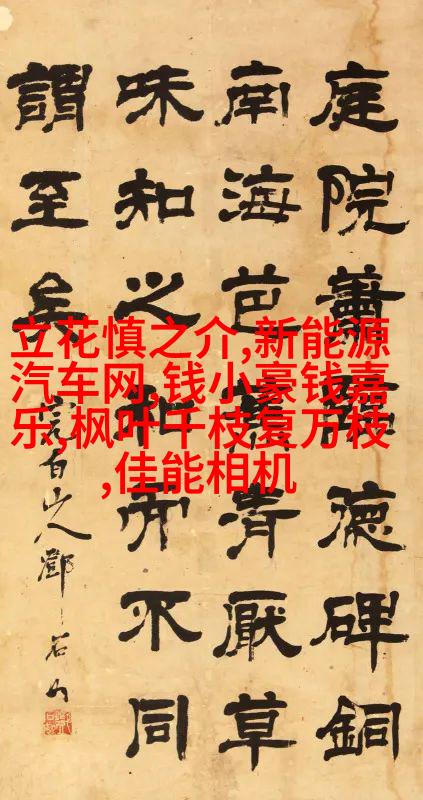 立花慎之介,新能源
汽车网,钱小豪钱嘉
乐,枫叶千枝复万枝
,佳能相机
庭院蕭德碑銅
南海芭蕉青厭草
味知之和而不同
謂至矣
完白山人鄧石如